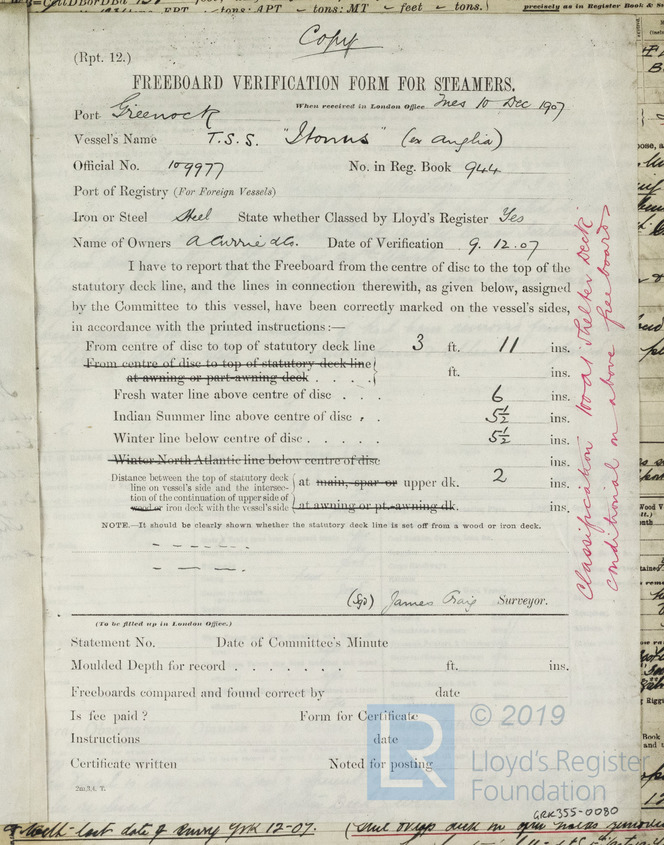 tons: APT ~ tons: MT ~ feet ~ tons.)
precisely as in Register Book
Copy
(Rpt. 12.)
FREEBOARD VERIFICATION FORM FOR STEAMERS.
Port Greenock When received in London Office Tues 10 Dec 1907
Vessel's Name T.S.S. "Itonus" (ex Anglia)
Official No. 109977 No. in Reg. Book 944
Port of Registry (For Foreign Vessels)
Iron or Steel Steel State whether Classed by Lloyd's Register Yes
Name of Owners A Currie & Co. Date of Verification 9.12.07
I have to report that the Freeboard from the centre of disc to the top of the
statutory deck line, and the lines in connection therewith, as given below, assigned
by the Committee to this vessel, have been correctly marked on the vessel's sides,
in accordance with the printed instructions:—
From centre of disc to top of statutory deck line 3 ft. 11 ins.
From centre of disc to top of statutory deck line
at awning or part-awning deck . . . . ft. ins.
Fresh water line above centre of disc . . . 6 ins.
Indian Summer line above centre of disc . . 5½ ins.
Winter line below centre of disc . . . . . 5½ ins.
Winter North Atlantic line below centre of disc ins.
Distance between the top of statutory deck
line on vessel's side and the intersec-
tion of the continuation of upper side of
wood or iron deck with the vessel's side
at main, spar or upper dk. 2 ins.
at awning or pt.-awning dk. ins.
NOTE.—It should be clearly shown whether the statutory deck line is set off from a wood or iron deck.
(Sgd) James Craig Surveyor.
Classification 100A1 Shelter Deck
conditional on above freeboards
(To be filled up in London Office.)
Statement No. Date of Committee's Minute
Moulded Depth for record . . . . . . . ft. ins.
Freeboards compared and found correct by date
Is fee paid? Form for Certificate
Instructions date
Certificate written Noted for posting
2m,3,4. T.
LR
© 2019
Lloyd's Register
Foundation
GRK355-0080
last date of Survey Grk 12-07.